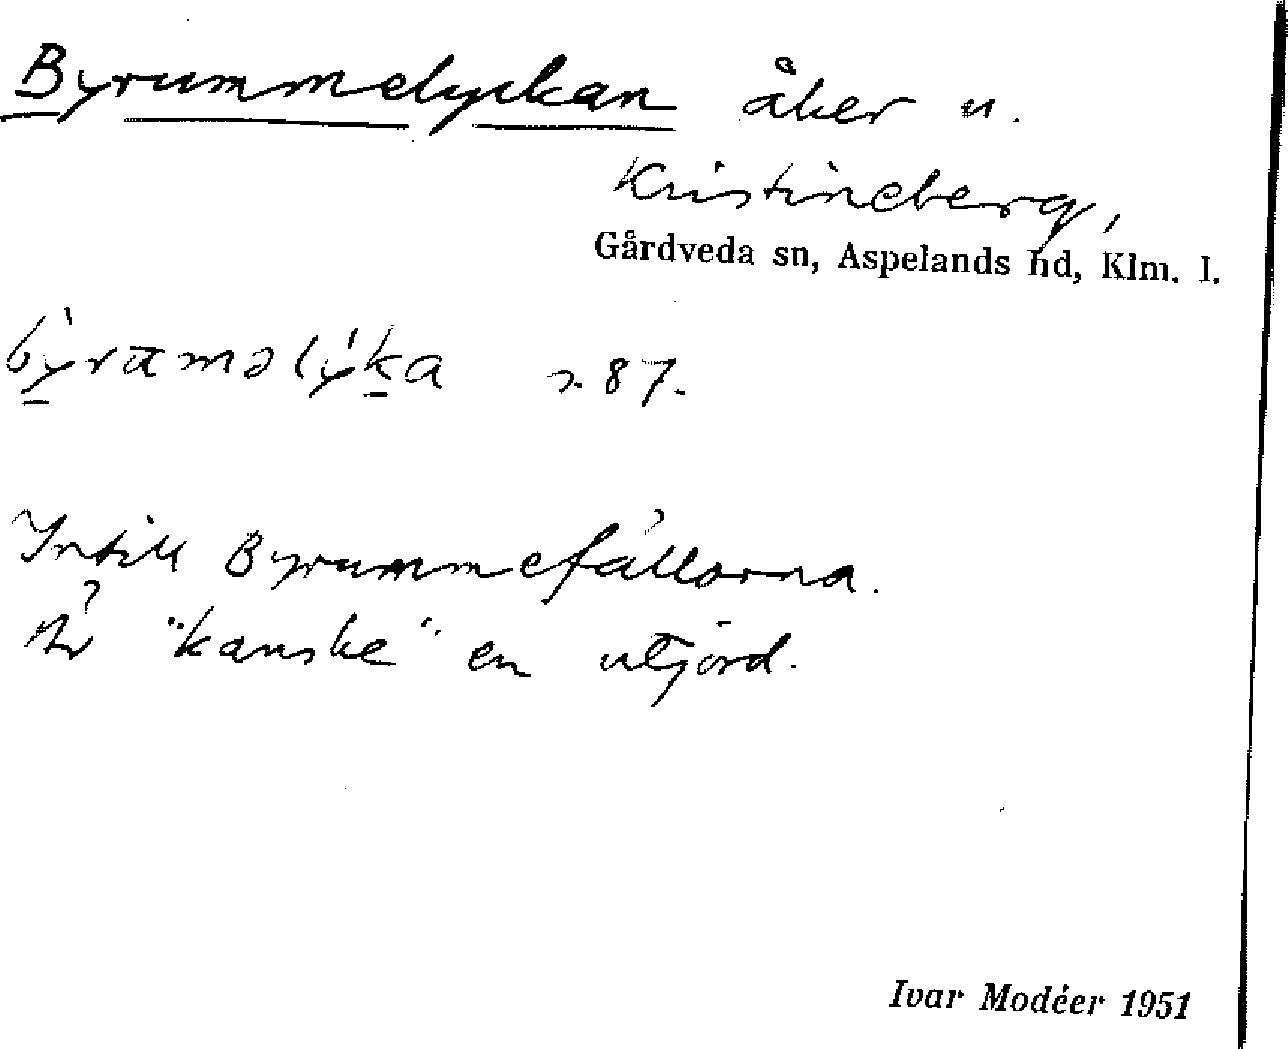 Byrummelyckan åker u.
Kristineberg,
Gårdveda sn, Aspelands hd, Klm. l.
s. 87.
Intill Byrummefällorna.
Är "kanske" en utjord.
Ivar Modéer 1951